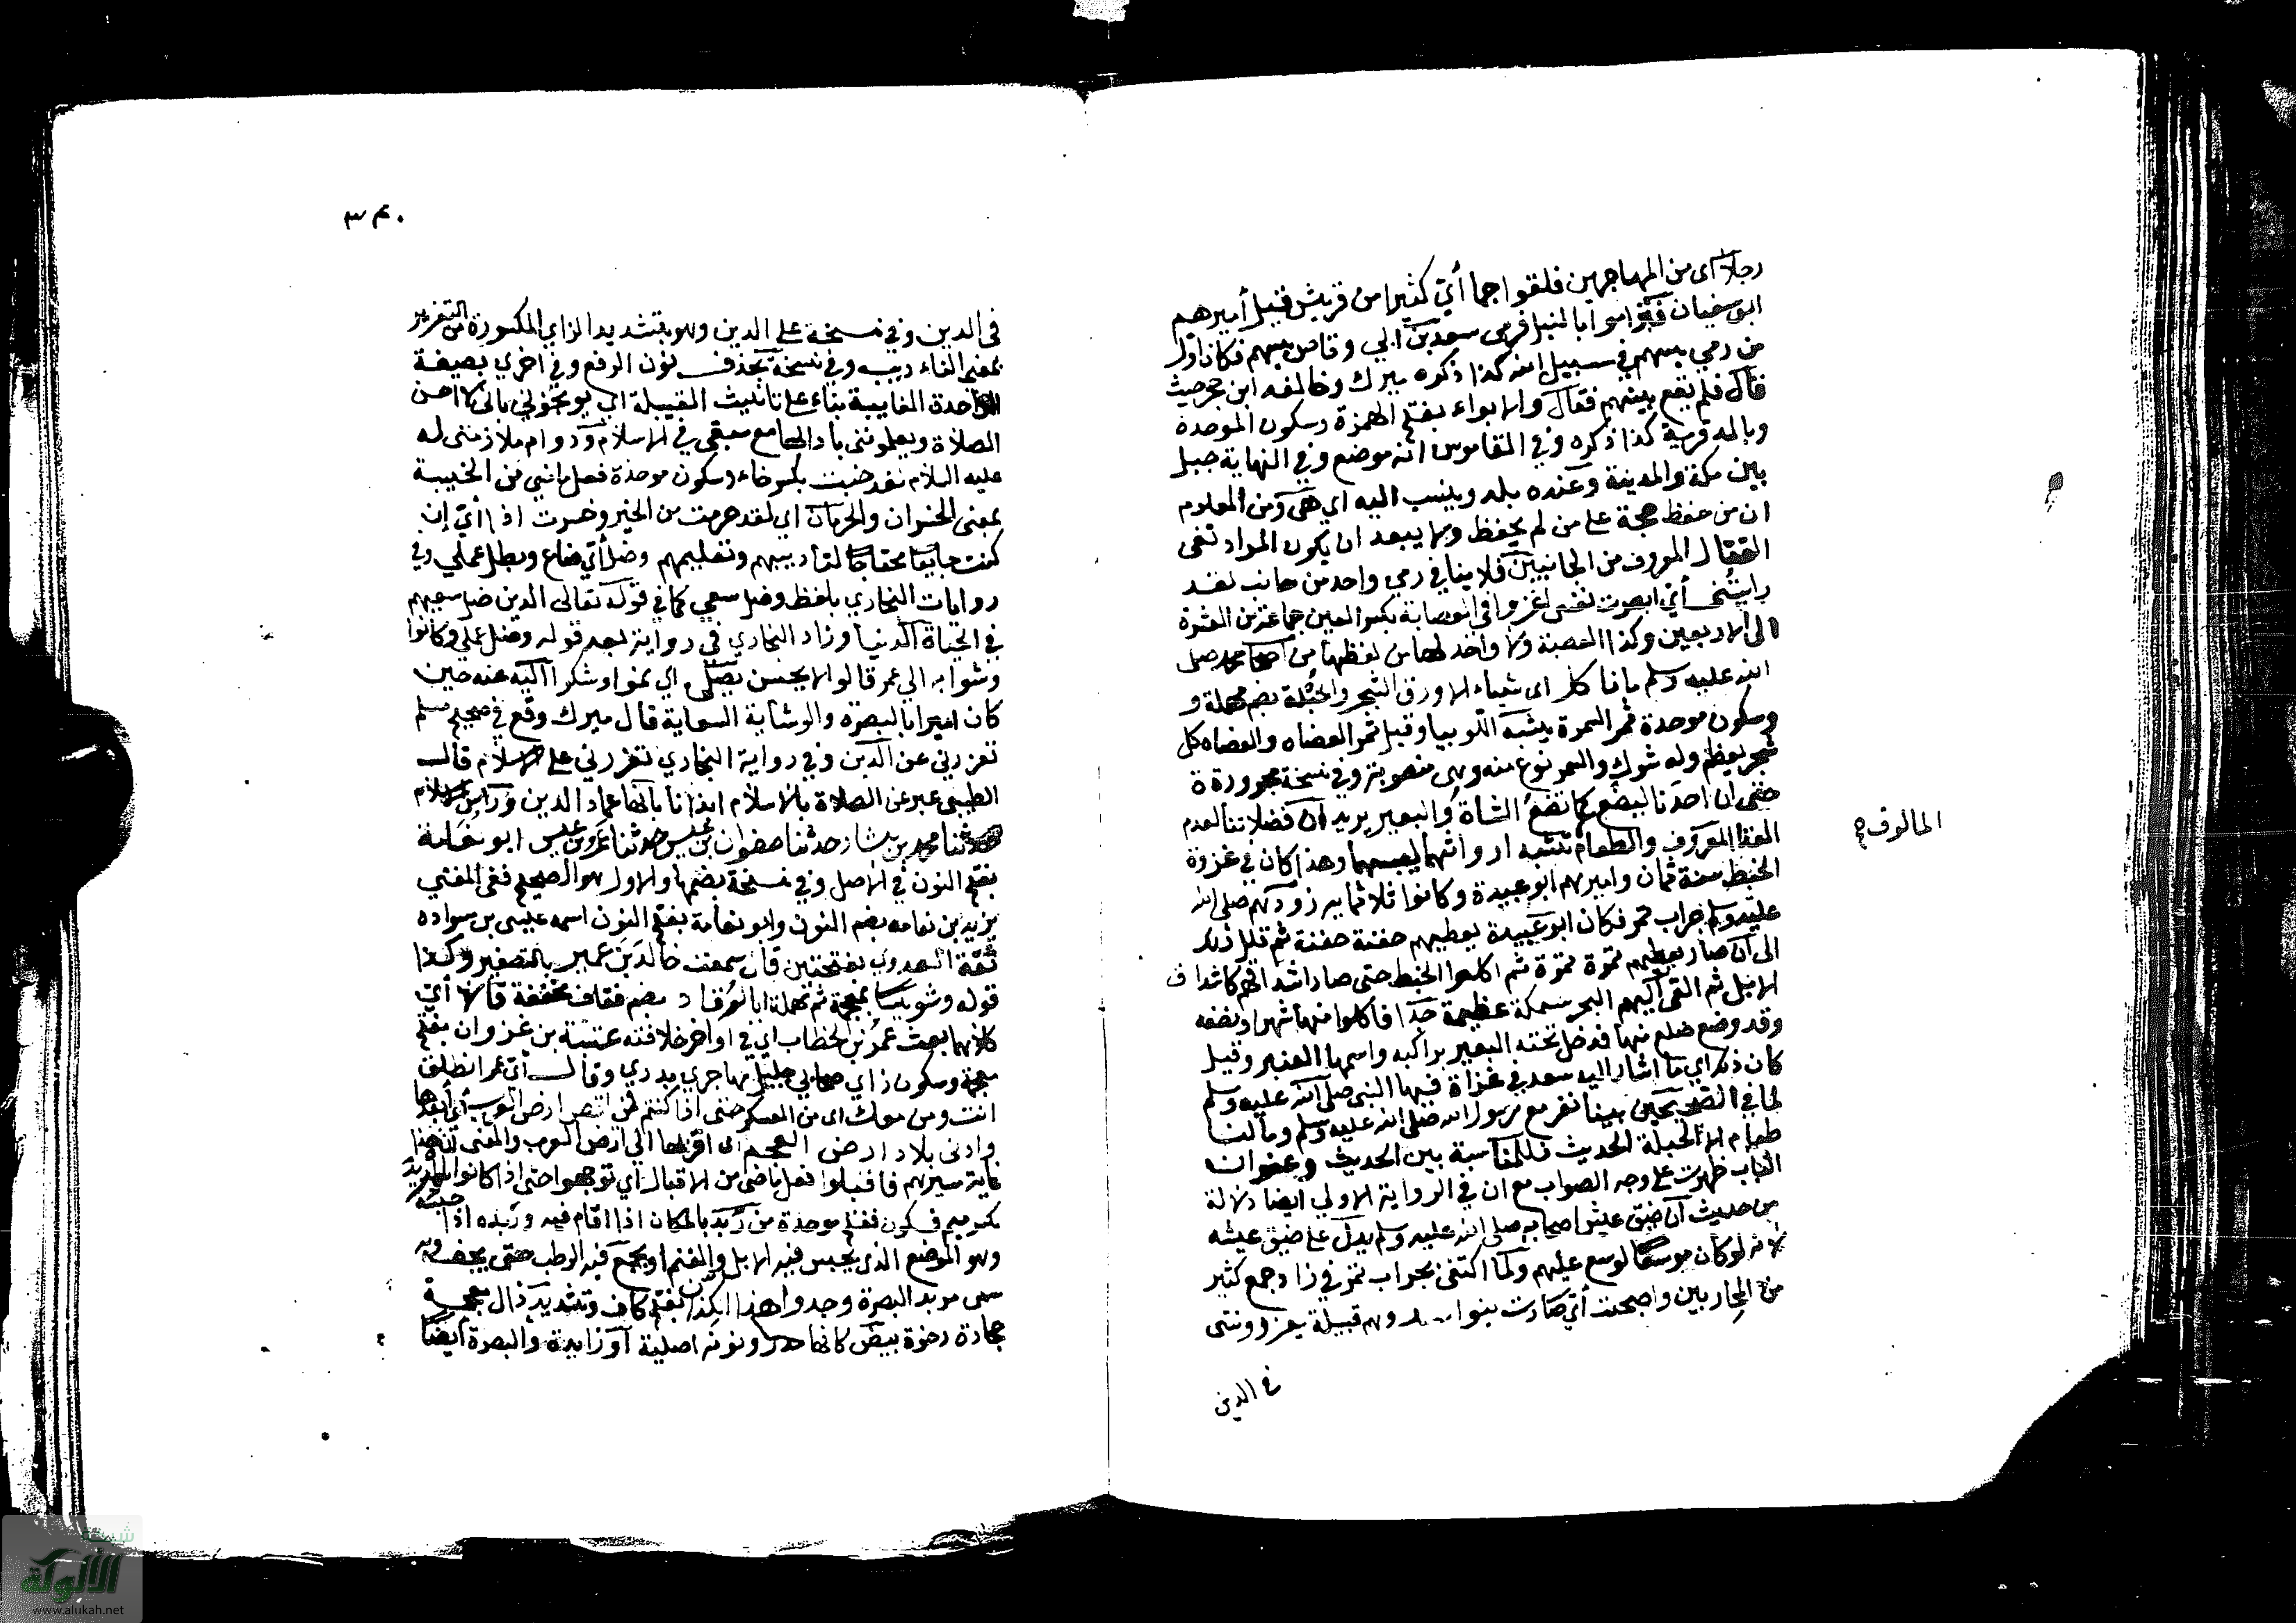 رجلا اى من المهاجرين فلقوا جما أي كثيرا من قريش قيل أميرهم
ابو سفيان فتراموا بالنبل فرمى سعد بن ابي وقاص بسهم فكان اول
من رمي بسهم في سبيل الله كذا ذكره ميرك وخالفه ابن حجر حيث
قال فلم يقع بينهم قتال والابواء بفتح الهمزة وسكون الموحدة
وبالمد قرية كذا ذكره وفي القاموس انه موضع وفي النهاية جبل
بين مكة والمدينة وعنده بلد وينسب اليه اي هي ومن المعلوم
ان من حفظ حجة على من لم يحفظ ولا يبعد ان يكون المراد نفى
القتال المعروف من الجانبين فلا ينافي رمي واحد من جانب لقد
رايتنى أي ابصرت نفسى اغزوا في العصابة بكسر العين جماعة من العشرة
الى الاربعين وكذا العصبة ولا واحد لها من لفظها من اصحاب محمد صلى
الله عليه وسلم ما ناكل اى شياء الا ورق الشجر والحبلة بضم مهملة و
وسكون موحدة ثمر السمرة يشبه اللوبيا وقيل ثمر العضاه والعضاه كل
شجر يعظم وله شوك والسمر نوع منه وهى منصوبة وفي نسخة مجرورة
حتى ان احدنا ليضع كما تضع الشاة والبعير يريد ان فضلاتنا لعدم
الغذا المعروف والطعام تشبه ارواثهما ليبسهما وهذا كان في غزوة
المالوف
الخبط سنة ثمان واميرهم ابو عبيدة وكانوا ثلاثماية زودهم صلى الله
عليه وسلم جراب تمر فكان ابو عبيدة يعطيهم حفنة حفنة ثم قلل ذلك
الى ان صار يعطيهم تمرة تمرة ثم اكلوا الخبط حتى صار اشداقهم كاشداف
الابل ثم القى اليهم البحر سمكة عظيمة جدا فاكلوا منها شهرا ونصفه
وقد وضع ضلع منها فدخل تحته البعير براكبه واسمها العنبر وقيل
كان ذلك اي ما اشار اليه سعد في غزاة فيها النبي صلى الله عليه وسلم
لما في الصحيحين بينا نغزو مع رسول الله صلى الله عليه وسلم وما لنا
طعام الا الحبلة الحديث فللمناسبة بين الحديث وعنوان
الباب ظهرت على وجه الصواب مع ان في الرواية الاولي ايضا دلالة
من حديث ان ضيق عيش اصحابه صلى الله عليه وسلم يدل على ضيق عيشه
لانه لو كان موسعا لوسع عليهم ولما اكتفى بجراب تمر في زاد جمع كثير
من المحاربين واصبحت أي صارت بنوا وهم قبيلة يعزرونني
في الدين
٣٣٠
في الدين وفي نسخة على الدين وهو بتشديد الزاي المكسورة من التعزير
بمعنى التاديب وفي نسخة بحذف نون الرفع وفي اخري بصيغة
الواحدة الغايبة بناء على تانيث القبيلة اي يوبخونني باني لا احسن
الصلاة ويعلمونني بادابها مع سبقى في الاسلام ودوام ملازمتى له
عليه السلام لقد خبت بكسر خاء وسكون موحدة فعل ماضي من الخيبة
بمعنى الخسران والحرمان اي لقد حرمت من الخير وخسرت اذا أي إن
كنت محتاجا لتاديبهم وتعليمهم وضل أي ضاع وبطل عملي وفي
روايات البخاري بلفظ وضل سعي كما في قوله تعالى الذين ضل سعيهم
في الحياة الدنيا وزاد البخاري في رواية بعد قوله وضل عملي وكانوا
وشوا به الي عمر قالوا لا يحسن يصلى اي نموا وشكوا اليه عنه حين
كان اميرا بالبصرة والوشاية السعاية قال ميرك وقع في صحيح مسلم
تعزرني عن الدين وفي رواية البخاري تعزرني على الاسلام قال
الطيبي عبر عن الصلاة بالاسلام ايذانا بانها عماد الدين وراس الاسلام
حدثنا محمد بن بشار حدثنا صفوان بن عيسى حدثنا عمرو بن عيسى ابو نعامة
بفتح النون في الاصل وفي نسخة بضمها والاول هو الصحيح ففي المغني
يزيد بن نعامه بضم النون وابو نعامة بفتح النون اسمه عيسى بن سواده
ثقة العدوي بفتحتين قال سمعت خالد بن عمير بالتصغير وكذا
قوله وشويسا بمعجمة ثم مهملة ابا الرقاد بضم فقاف مخففة قالا أي
كلاهما بعث عمر بن الخطاب اي في اواخر خلافته عتبة بن غزوان بفتح
معجمة وسكون زاي صحابي جليل مهاجري بدري وقال أي عمر انطلق
انت ومن معك اى من العسكر حتى اذا كنتم في اقصى ارض العرب أي ابعدها
وادنى بلاد ارض العجم اى اقربها الي ارض العرب والمعنى ان هذا
غاية سيرهم فاقبلوا فعل ماضى من الاقبال اي توجهوا حتى اذا كانوا بالمربد
بكسر ميم فسكون ففتح موحدة من ربد بالمكان اذا اقام فيه وربده اذا حبسه
وهو الموضع الذى يحبس فيه الابل والغنم او يجمع فيه الرطب حتى يجف وبه
سمى مربد البصرة وجدوا هذا الكذان بفتح كاف وتشديد ذال معجمة
حجارة رخوة بيض كانها مدر ونونه اصلية او زايدة والبصرة ايضا
الألوكة
www.alukah.net